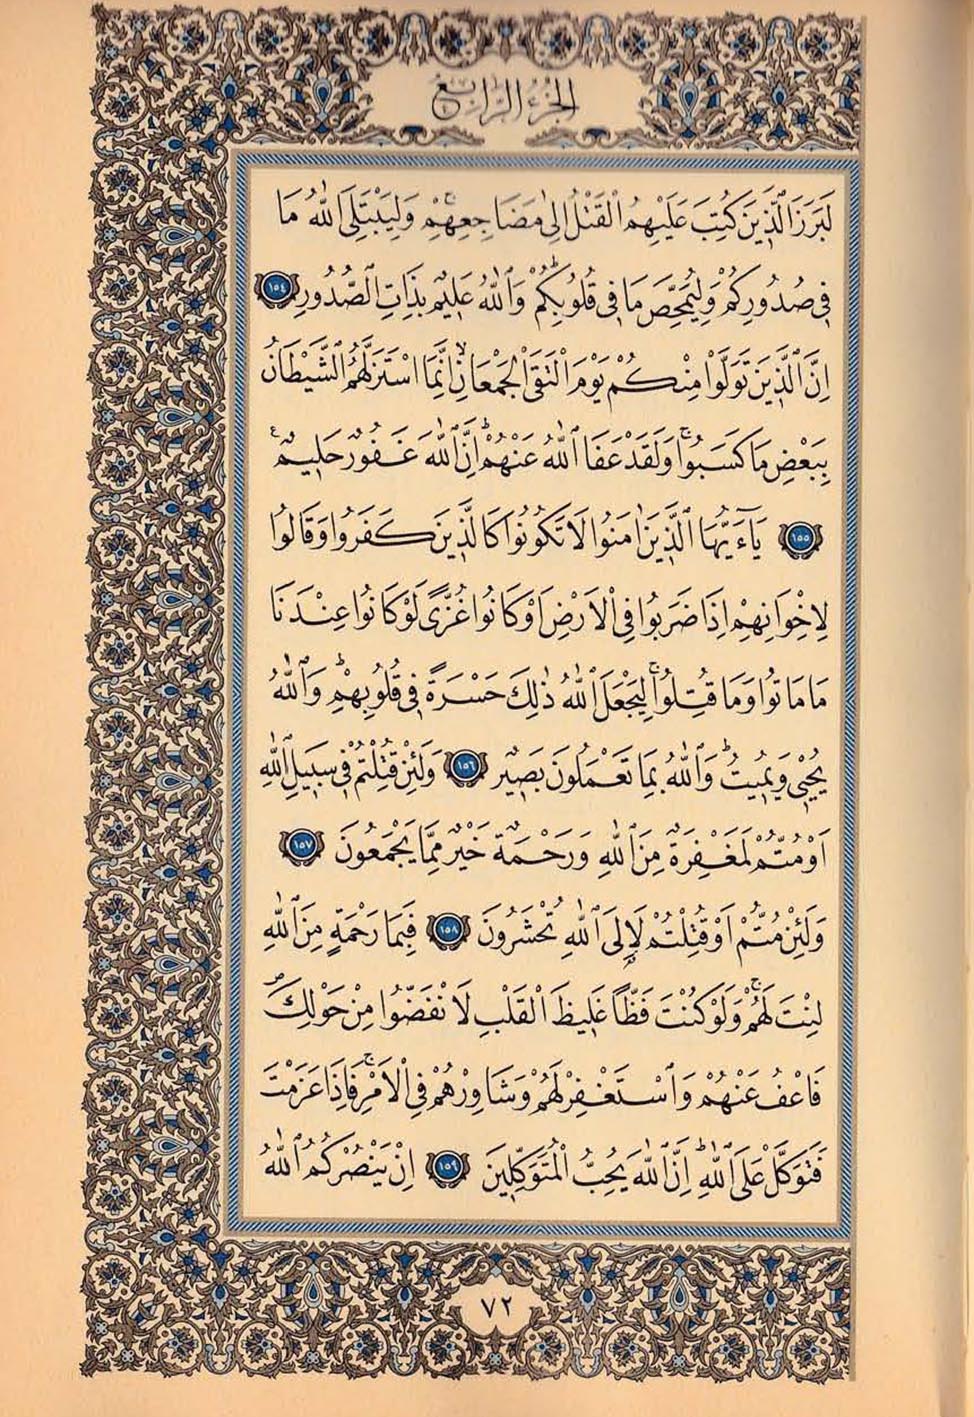 الجزء الرابع
لَبَرَزَ ٱلَّذِينَ كُتِبَ عَلَيْهِمُ ٱلْقَتْلُ اِلٰى مَضَاجِعِهِمْ ۚ وَلِيَبْتَلِىَ ٱللّٰهُ مَا
فِى صُدُورِكُمْ وَلِيُمَحِّصَ مَا فِى قُلُوبِكُمْ ؕ وَٱللّٰهُ عَلِيمٌ بِذَاتِ ٱلصُّدُورِ ١٥٤
اِنَّ ٱلَّذِينَ تَوَلَّوْا مِنْكُمْ يَوْمَ ٱلْتَقَى ٱلْجَمْعَانِ ۙ اِنَّمَا ٱسْتَزَلَّهُمُ ٱلشَّيْطَانُ
بِبَعْضِ مَا كَسَبُوا ۚ وَلَقَدْ عَفَا ٱللّٰهُ عَنْهُمْ ؕ اِنَّ ٱللّٰهَ غَفُورٌ حَلِيمٌ ع
١٥٥ يَآءَيُّهَا ٱلَّذِينَ اٰمَنُوا لَا تَكُونُوا كَالَّذِينَ كَفَرُوا وَقَالُوا
لِاِخْوَانِهِمْ اِذَا ضَرَبُوا فِى ٱلْاَرْضِ اَوْ كَانُوا غُزًّى لَوْ كَانُوا عِنْدَنَا
مَا مَاتُوا وَمَا قُتِلُوا ۚ لِيَجْعَلَ ٱللّٰهُ ذٰلِكَ حَسْرَةً فِى قُلُوبِهِمْ ؕ وَٱللّٰهُ
يُحْيِى وَيُمِيتُ ؕ وَٱللّٰهُ بِمَا تَعْمَلُونَ بَصِيرٌ ١٥٦ وَلَئِنْ قُتِلْتُمْ فِى سَبِيلِ ٱللّٰهِ
اَوْ مُتُّمْ لَمَغْفِرَةٌ مِنَ ٱللّٰهِ وَرَحْمَةٌ خَيْرٌ مِمَّا يَجْمَعُونَ ١٥٧
وَلَئِنْ مُتُّمْ اَوْ قُتِلْتُمْ لَاِلَى ٱللّٰهِ تُحْشَرُونَ ١٥٨ فَبِمَا رَحْمَةٍ مِنَ ٱللّٰهِ
لِنْتَ لَهُمْ ۚ وَلَوْ كُنْتَ فَظًّا غَلِيظَ ٱلْقَلْبِ لَانْفَضُّوا مِنْ حَوْلِكَ ۖ
فَاعْفُ عَنْهُمْ وَٱسْتَغْفِرْ لَهُمْ وَشَاوِرْهُمْ فِى ٱلْاَمْرِ ۚ فَاِذَا عَزَمْتَ
فَتَوَكَّلْ عَلَى ٱللّٰهِ ؕ اِنَّ ٱللّٰهَ يُحِبُّ ٱلْمُتَوَكِّلِينَ ١٥٩ اِنْ يَنْصُرْكُمُ ٱللّٰهُ
٧٢